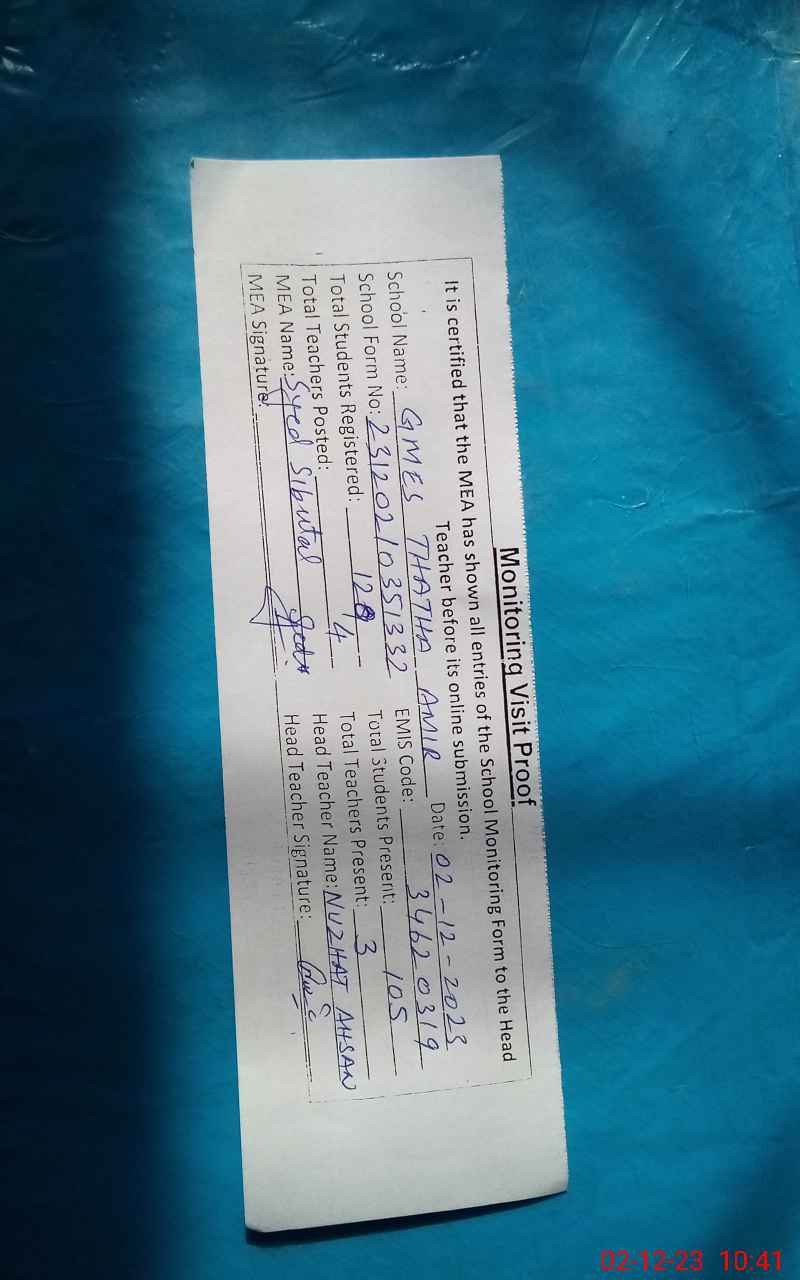 Monitoring Visit Proof
It is certified that the MEA has shown all entries of the School Monitoring Form to the Head
Teacher before its online submission.
Date: 02-12-2023
School Name: GMES THATHA AMIR EMIS Code: 34620319
School Form No: 23120210351332 Total Students Present: 105
Total Students Registered: 129 Total Teachers Present: 3
Total Teachers Posted: 4 Head Teacher Name: NUZHAT AHSAN
MEA Name: Syed Sibutal Head Teacher Signature:
MEA Signature:
02-12-23 10:41